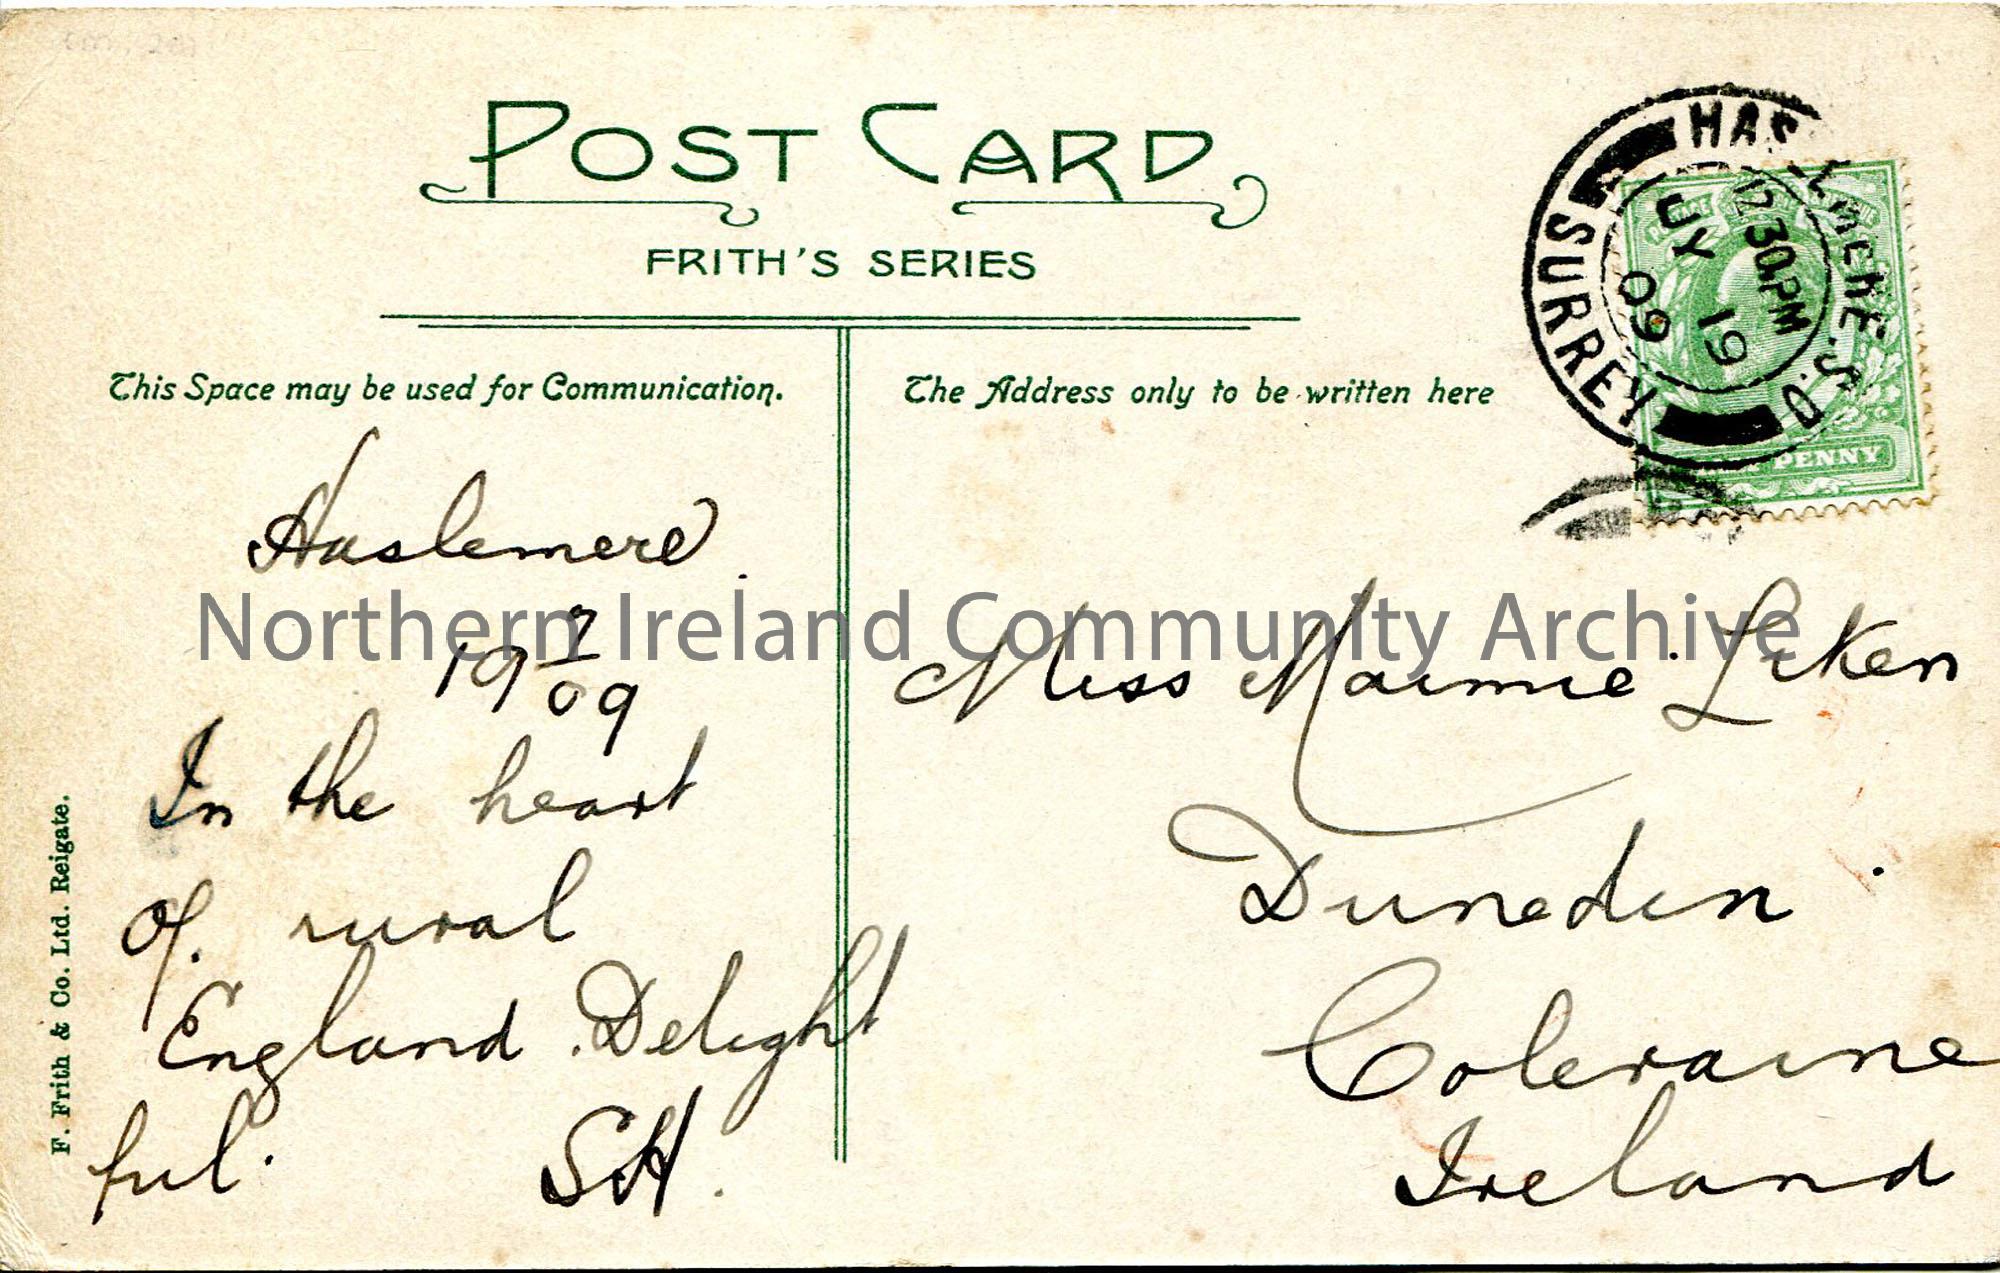 POST CARD
FRITH'S SERIES
This Space may be used for Communication.
The Address only to be written here
HASLEMERE S.O.
12.30PM
JY 19
09
SURREY
PENNY
Haslemere
19 7/09
In the heart
of rural
England. Delight
ful.
SH.
Miss Maimie Eken
Dunedin
Coleraine
Ireland
F. Frith & Co. Ltd. Reigate.
Northern Ireland Community Archive